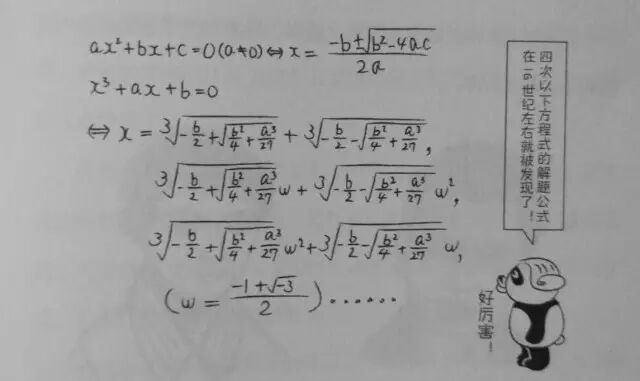 ax²+bx+c=0(a≠0)⇔x=(-b±√(b²-4ac))/(2a)
x³+ax+b=0
⇔ x = ³√(-b/2+√(b²/4+a³/27)) + ³√(-b/2-√(b²/4+a³/27)),
³√(-b/2+√(b²/4+a³/27)) ω + ³√(-b/2-√(b²/4+a³/27)) ω²,
³√(-b/2+√(b²/4+a³/27)) ω² + ³√(-b/2-√(b²/4+a³/27)) ω,
(ω = (-1+√-3)/2)……
四次以下方程式的解题公式
在16世纪左右就被发现了!
好厉害!